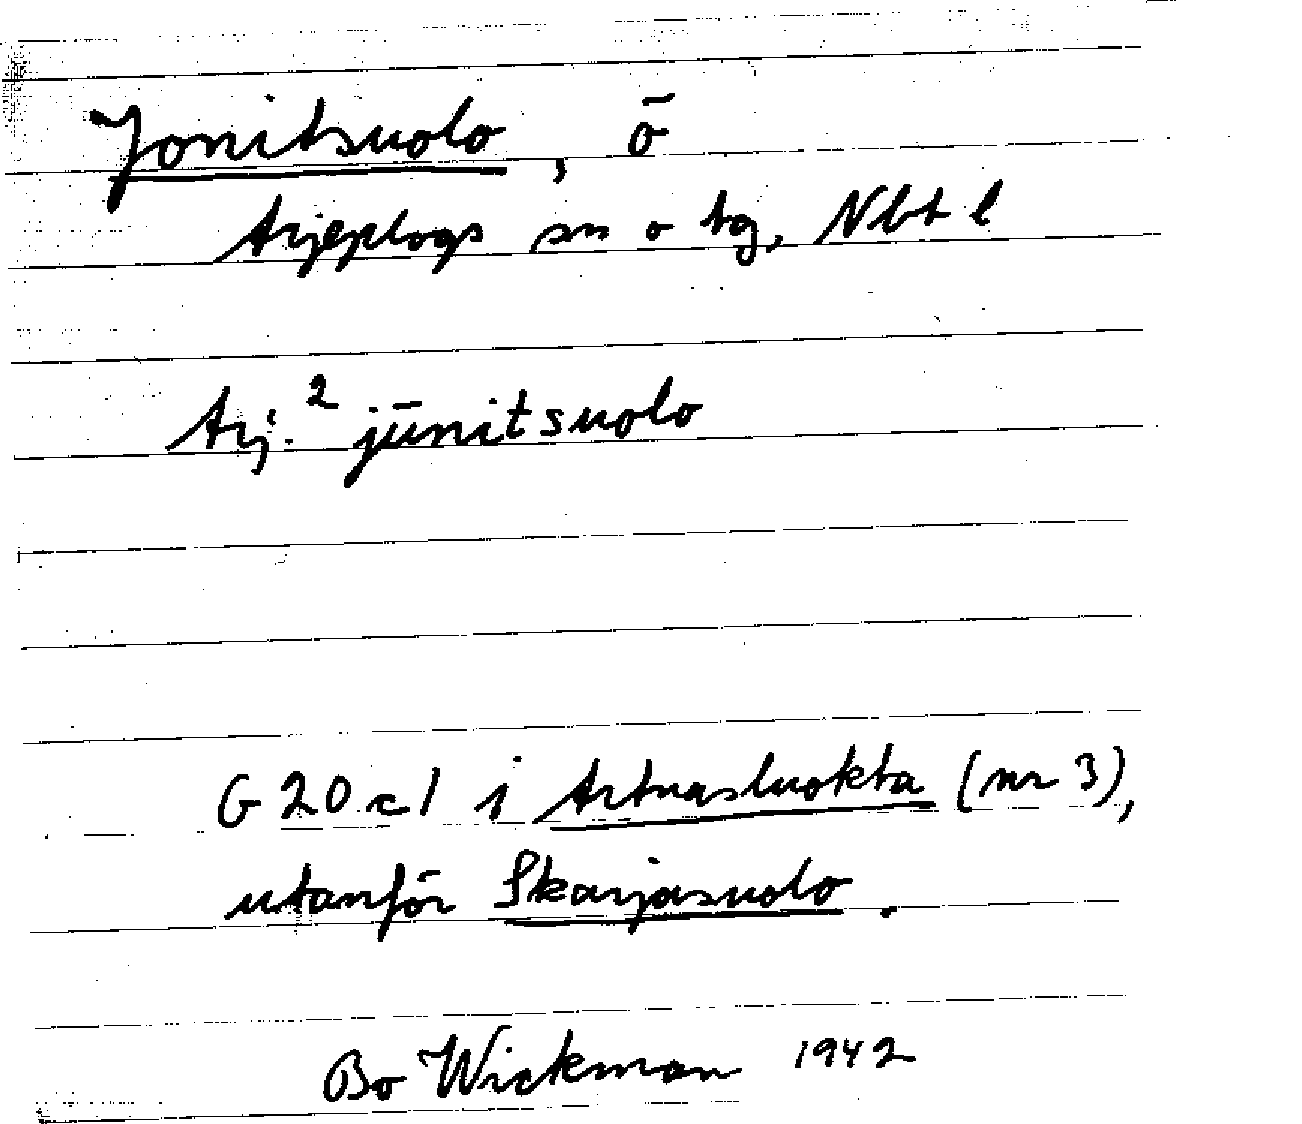 Jonitsuolo, ö
Arjeplogs sn o tg, Nbt l
Arj.² jūnitsuolo
G 20 c 1 i Artnasluokta (nr 3),
utanför Skarjasuolo.
Bo Wickman 1942